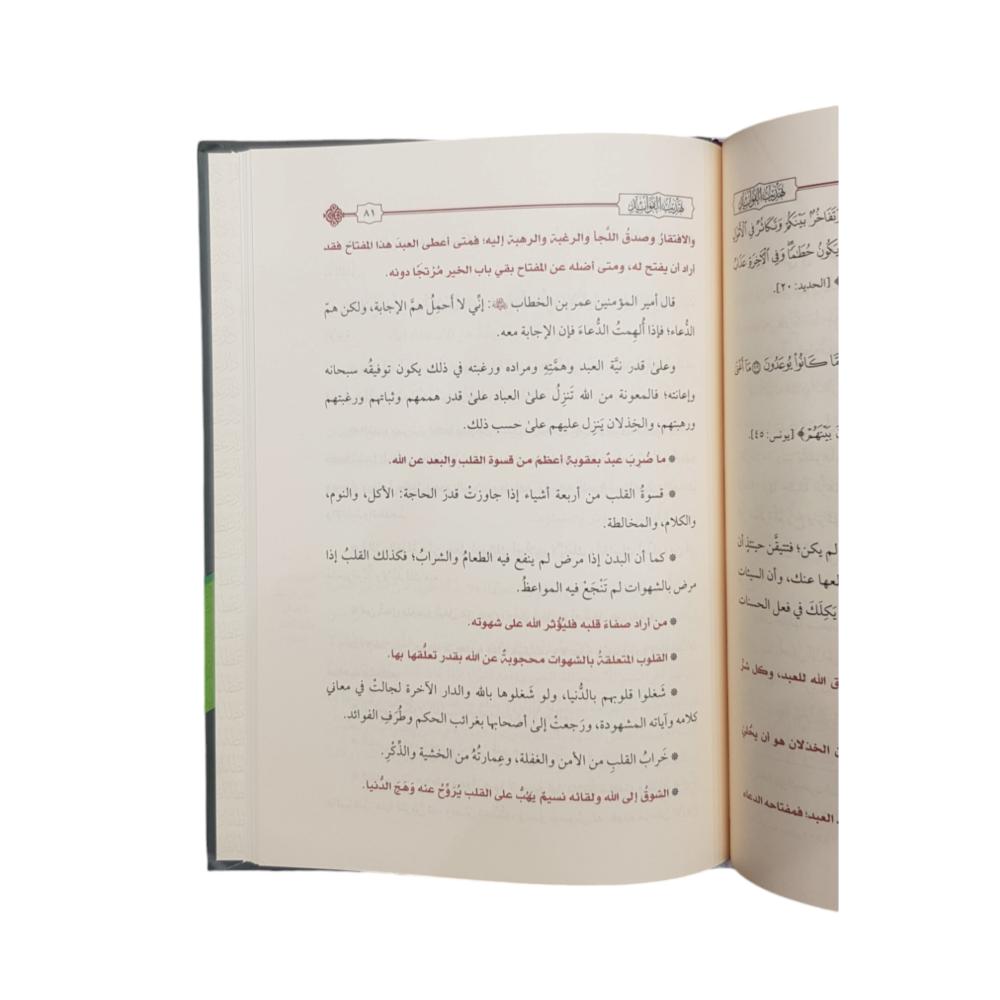 تهذيب الفوائد
٨١
والافتقارُ وصدقُ اللَّجأ والرغبة والرهبة إليه؛ فمتى أعطى العبدَ هذا المفتاحَ فقد
أراد أن يفتح له، ومتى أضله عن المفتاح بقي باب الخير مُرْتجًا دونه.
قال أمير المؤمنين عمر بن الخطاب رضي الله عنه: إنِّي لا أَحمِلُ همَّ الإجابة، ولكن همّ
الدُّعاء؛ فإذا أُلهِمتُ الدُّعاءَ فإن الإجابة معه.
وعلىٰ قدر نيَّة العبد وهمَّتِهِ ومراده ورغبته في ذلك يكون توفيقُه سبحانه
وإعانته؛ فالمعونة من الله تَنزِلُ علىٰ العباد علىٰ قدر هممهم وثباتهم ورغبتهم
ورهبتهم، والخِذلان يَنزِل عليهم علىٰ حسب ذلك.
* ما ضُرِبَ عبدٌ بعقوبة أعظمَ من قسوة القلب والبعد عن الله.
* قسوةُ القلب من أربعة أشياء إذا جاوزتْ قدرَ الحاجة: الأكل، والنوم،
والكلام، والمخالطة.
* كما أن البدن إذا مرض لم ينفع فيه الطعامُ والشرابُ؛ فكذلك القلبُ إذا
مرض بالشهوات لم تَنْجَعْ فيه المواعظُ.
* من أراد صفاءَ قلبه فليُؤْثر الله على شهوته.
* القلوب المتعلقةُ بالشهوات محجوبةٌ عن الله بقدر تعلُّقها بها.
* شَغلوا قلوبهم بالدُّنيا، ولو شَغلوها بالله والدار الآخرة لجالتْ في معاني
كلامه وآياته المشهودة، ورَجعتْ إلىٰ أصحابها بغرائب الحكم وطُرَفِ الفوائد.
* خَرابُ القلبِ من الأمن والغفلة، وعِمارتُهُ من الخشية والذِّكْرِ.
* الشوقُ إلى الله ولقائه نسيمٌ يَهُبُّ على القلب يُرَوِّحُ عنه وَهَجَ الدُّنيا.
تهذيب الفوائد
وَتَفَاخُرٌ بَيْنَكُمْ وَتَكَاثُرٌ فِي الْأَمْوَٰلِ
يَكُونُ حُطَٰمًا وَفِي الْآخِرَةِ عَذَابٌ
﴾ [الحديد: ٢٠].
مَّا كَانُوا۟ يُوعَدُونَ ۝ مَا أَغْنَىٰ
بَيْنَهُمْ﴾ [يونس: ٤٥].
لم يكن؛ فتتيقَّن حينئذٍ أن
عها عنك، وأن السيئات
يَكِلَكَ في فعل الحسنات
الله للعبد، وكل شرٍّ
الخذلان هو أن يخلي
العبد؛ فمفتاحه الدعاء